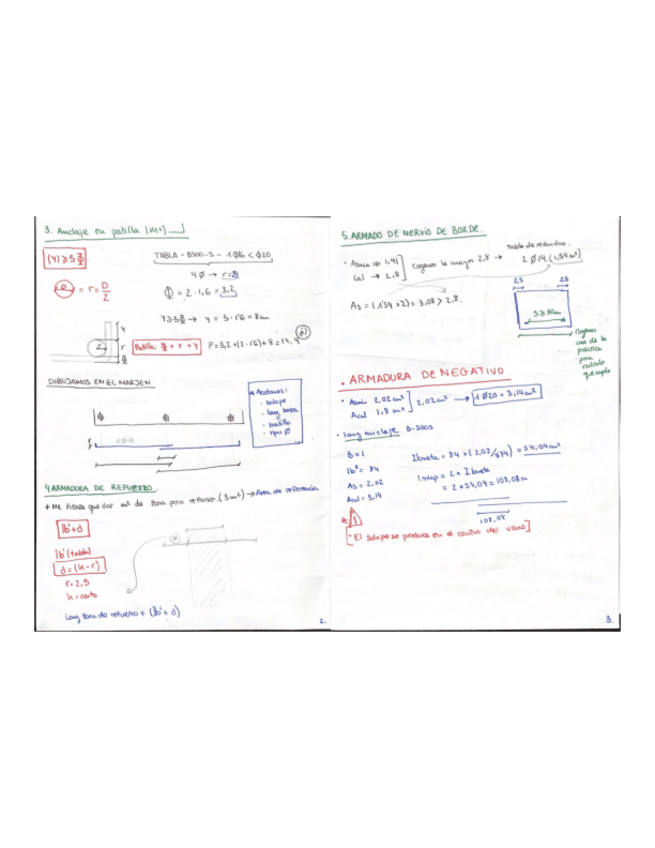 3. Anclaje en patilla (m+)
(Y) ≥ 5Φ
TABLA - B500-S - 1Ø16 < Ø20
4Ø → r=Ø
= r = D/2
Φ = 2 · 1,6 = 3,2
Y ≥ 5Φ → Y = 5 · 1'6 = 8cm
Y
r
Φ
Patilla: Φ + r + Y
P = 3,2 + (2 · 1'6) + 8 = 14,4
DIBUJAMOS EN EL MARJEN
Acotamos:
· solape
· long barra
· patilla
· tipo Ø
4 ARMADURA DE REFUERZO
lb + d
lb (tabla)
d = (h - r)
r = 2,5
h = canto
Long zona de refuerzo + (lb + d)
2.
5. ARMADO DE NERVIO DE BORDE.
Tabla de redondos.
· Asmin ⇒ 1,41
Cal → 2,8
Cogemos la mayor 2,8 →
2 Ø14 (1,54 cm²)
As = (1'54 x 2) = 3,08 > 2,8.
2,5
2,5
5 ≥ 30cm
Cogemos
uno de la
práctica
para
calculo
ejemplo
. ARMADURA DE NEGATIVO
· Asmin 2,02 cm²
Acal 1,8 cm²
2,02 cm² → 1 Ø20 = 3,14 cm²
· Long anclaje B-500S
B = 1
lb² = 84
As = 2,02
Acal = 3,14
lbneta = 84 x (2,02/3,14) = 54,04 cm²
Lsolap = 2 x lbneta
= 2 x 54,04 = 108,08 cm
108,08
· El solape se produce en el centro del vano
3.